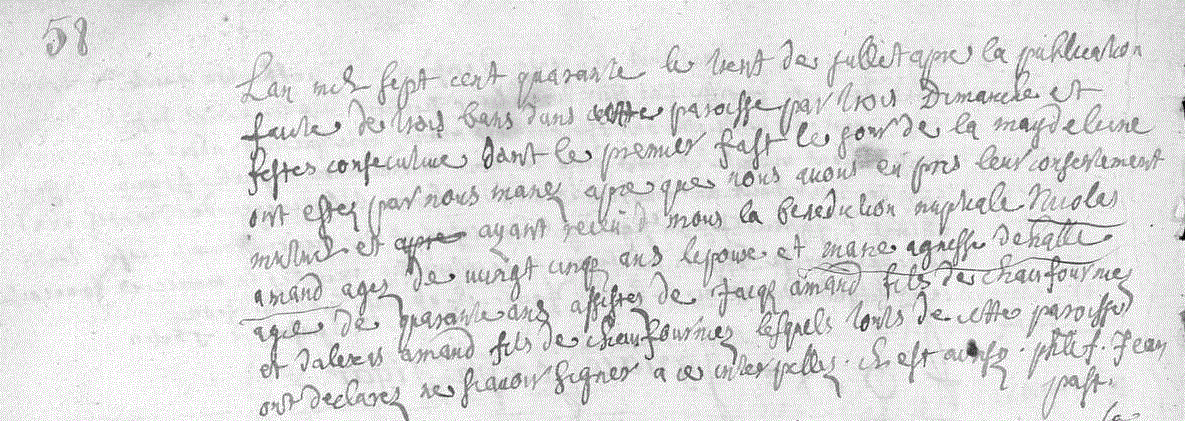 58
Lan mil sept cent quarante le trent de juillet apre la publication
faite de trois bans dans cette paroisse par trois Dimanche et
festes consecutive dont le premier fust le jour de la magdeleine
ont estez par nous mariez apre que nous avons eu pris leur consentement
mutuel et apres ayant recu de nous la benediction nuptiale Nicolas
amand agez de vingt cinq ans lepoux et marie agnesse dehalle
agee de quarante ans assistez de Jacq amand fils de chaufournier
et dalexis amand fils de chaufournier lesquels touts de cette paroisse
ont declarez ne scavoir signer a ce interpellez. Ch est ainsy. Jean
past.